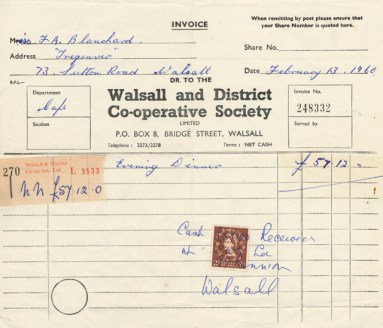 INVOICE
When remitting by post please ensure that
your Share Number is quoted here.
Miss F.A. Blanchard. Share No.
Address "Tregenver"
73, Sutton Road, Walsall Date February 13, 1960
DR. TO THE
Department
Café
Section
Walsall and District
Co-operative Society
LIMITED
P.O. BOX 8, BRIDGE STREET, WALSALL
Telephone : 2273/2278 Terms : NET CASH
Invoice No.
248332
Served by
270 Walsall & District
Co-op Soc. Ltd. L 9533
NN £57 12.0
Evening Dinner £57.12.-
Cash Received
Walsall